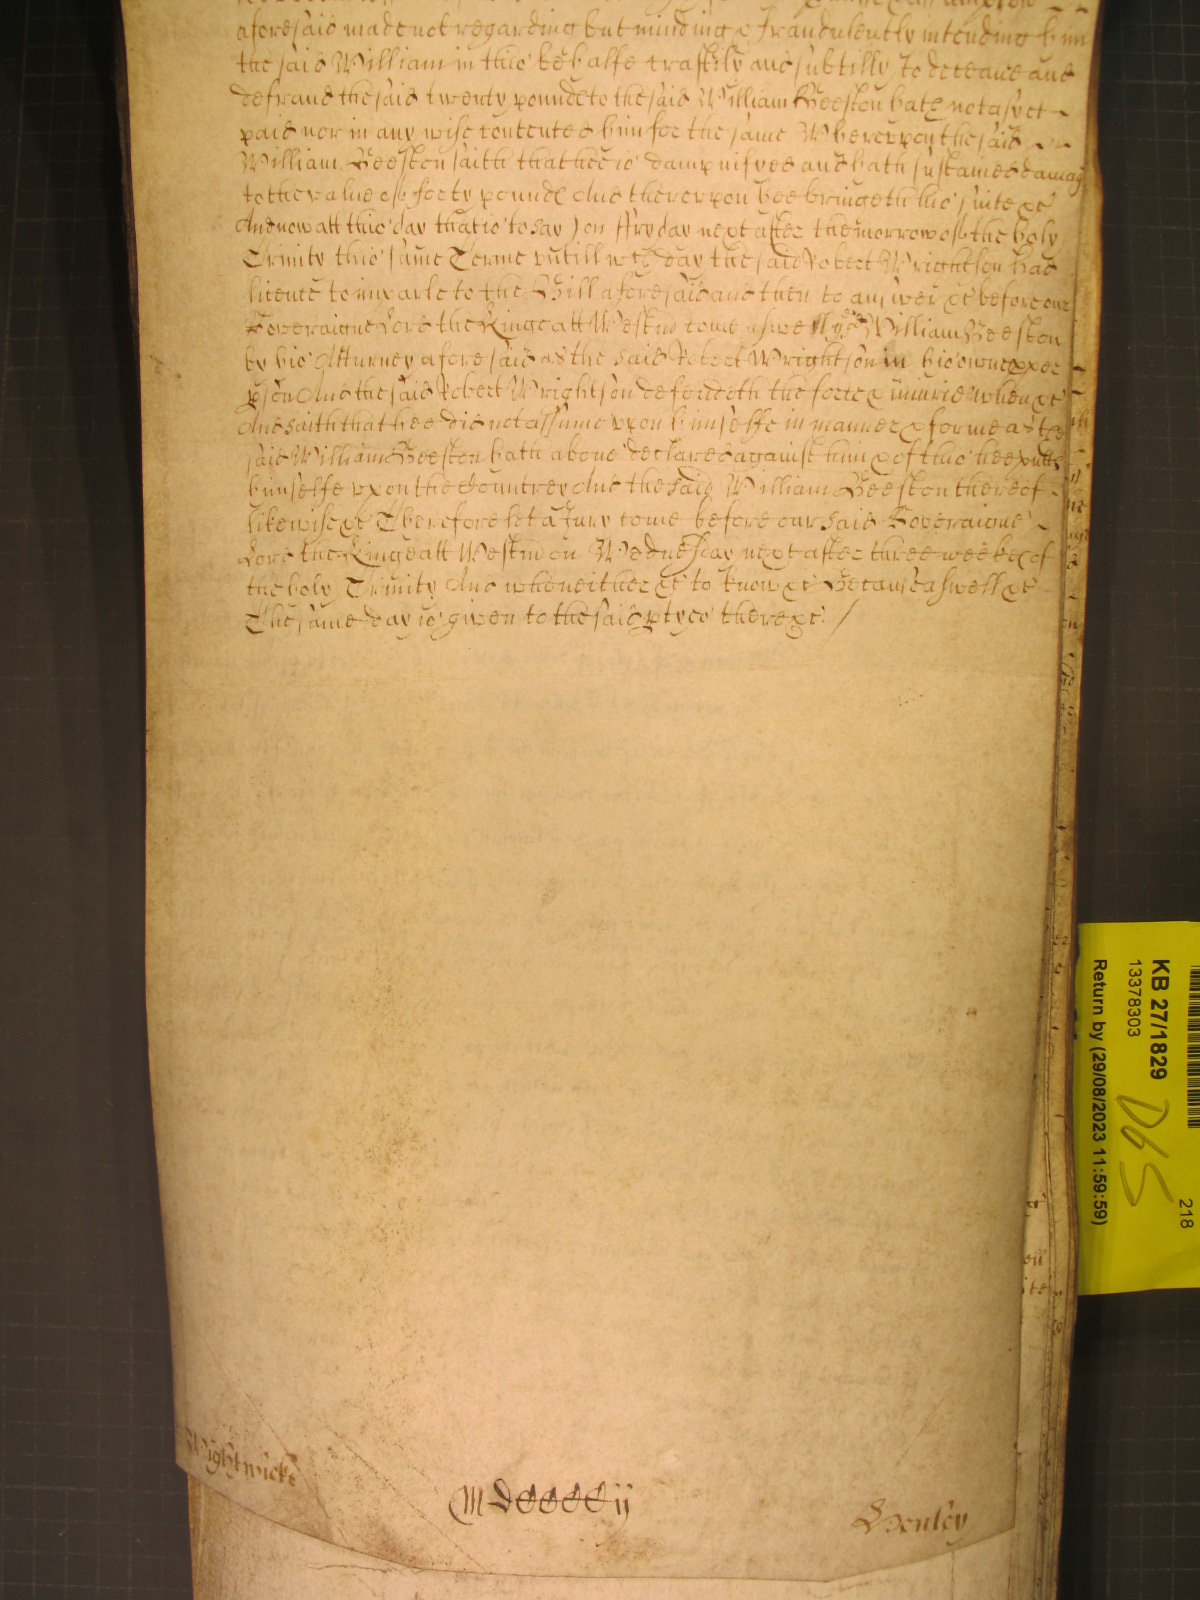 aforesaid made not regarding but minding & fraudulently intending him
the said William in this behalfe craftily and subtilly to deceave and
defraud the said twenty pounde to the said William Beeston hath not as yet
paid nor in any wise contented him for the same Whereupon the said
William Beeston saith that hee is dampnifyed and hath sustained damag
to the value of forty pound And thereupon hee bringeth his suite &c
And now att this day that is to say on ffryday next after the morrow of the holy
Trinity this same Terme untill wch day the said Robert Wrightson had
licence to imparle to the Bill aforesaid and then to answer &c before our
Soveraigne Lord the Kinge att Westm come aswell ye sd William Beeston
by his Atturney aforesaid as the said Robert Wrightson in his owne pper
pson And the said Robert Wrightson defendeth the force & iniurie when &c
And saith that hee did not assume upon himselfe in manner & forme as the
said William Beeston hath above declared against him & of this hee putts
himselfe upon the Countrey And the said William Beeston thereof
likewise &c Therefore let a Jury come before our said Soveraigne
Lord the Kinge att Westm on Wednesday next after three weekes of
the holy Trinity And who neither &c to know &c Because aswell &c
The same day is given to the said ptyes there &c /
Wightwicke
MDCCCCij
Henley
KB 27/1829
13378303
Return by (29/08/2023 11:59:59)
218
D65